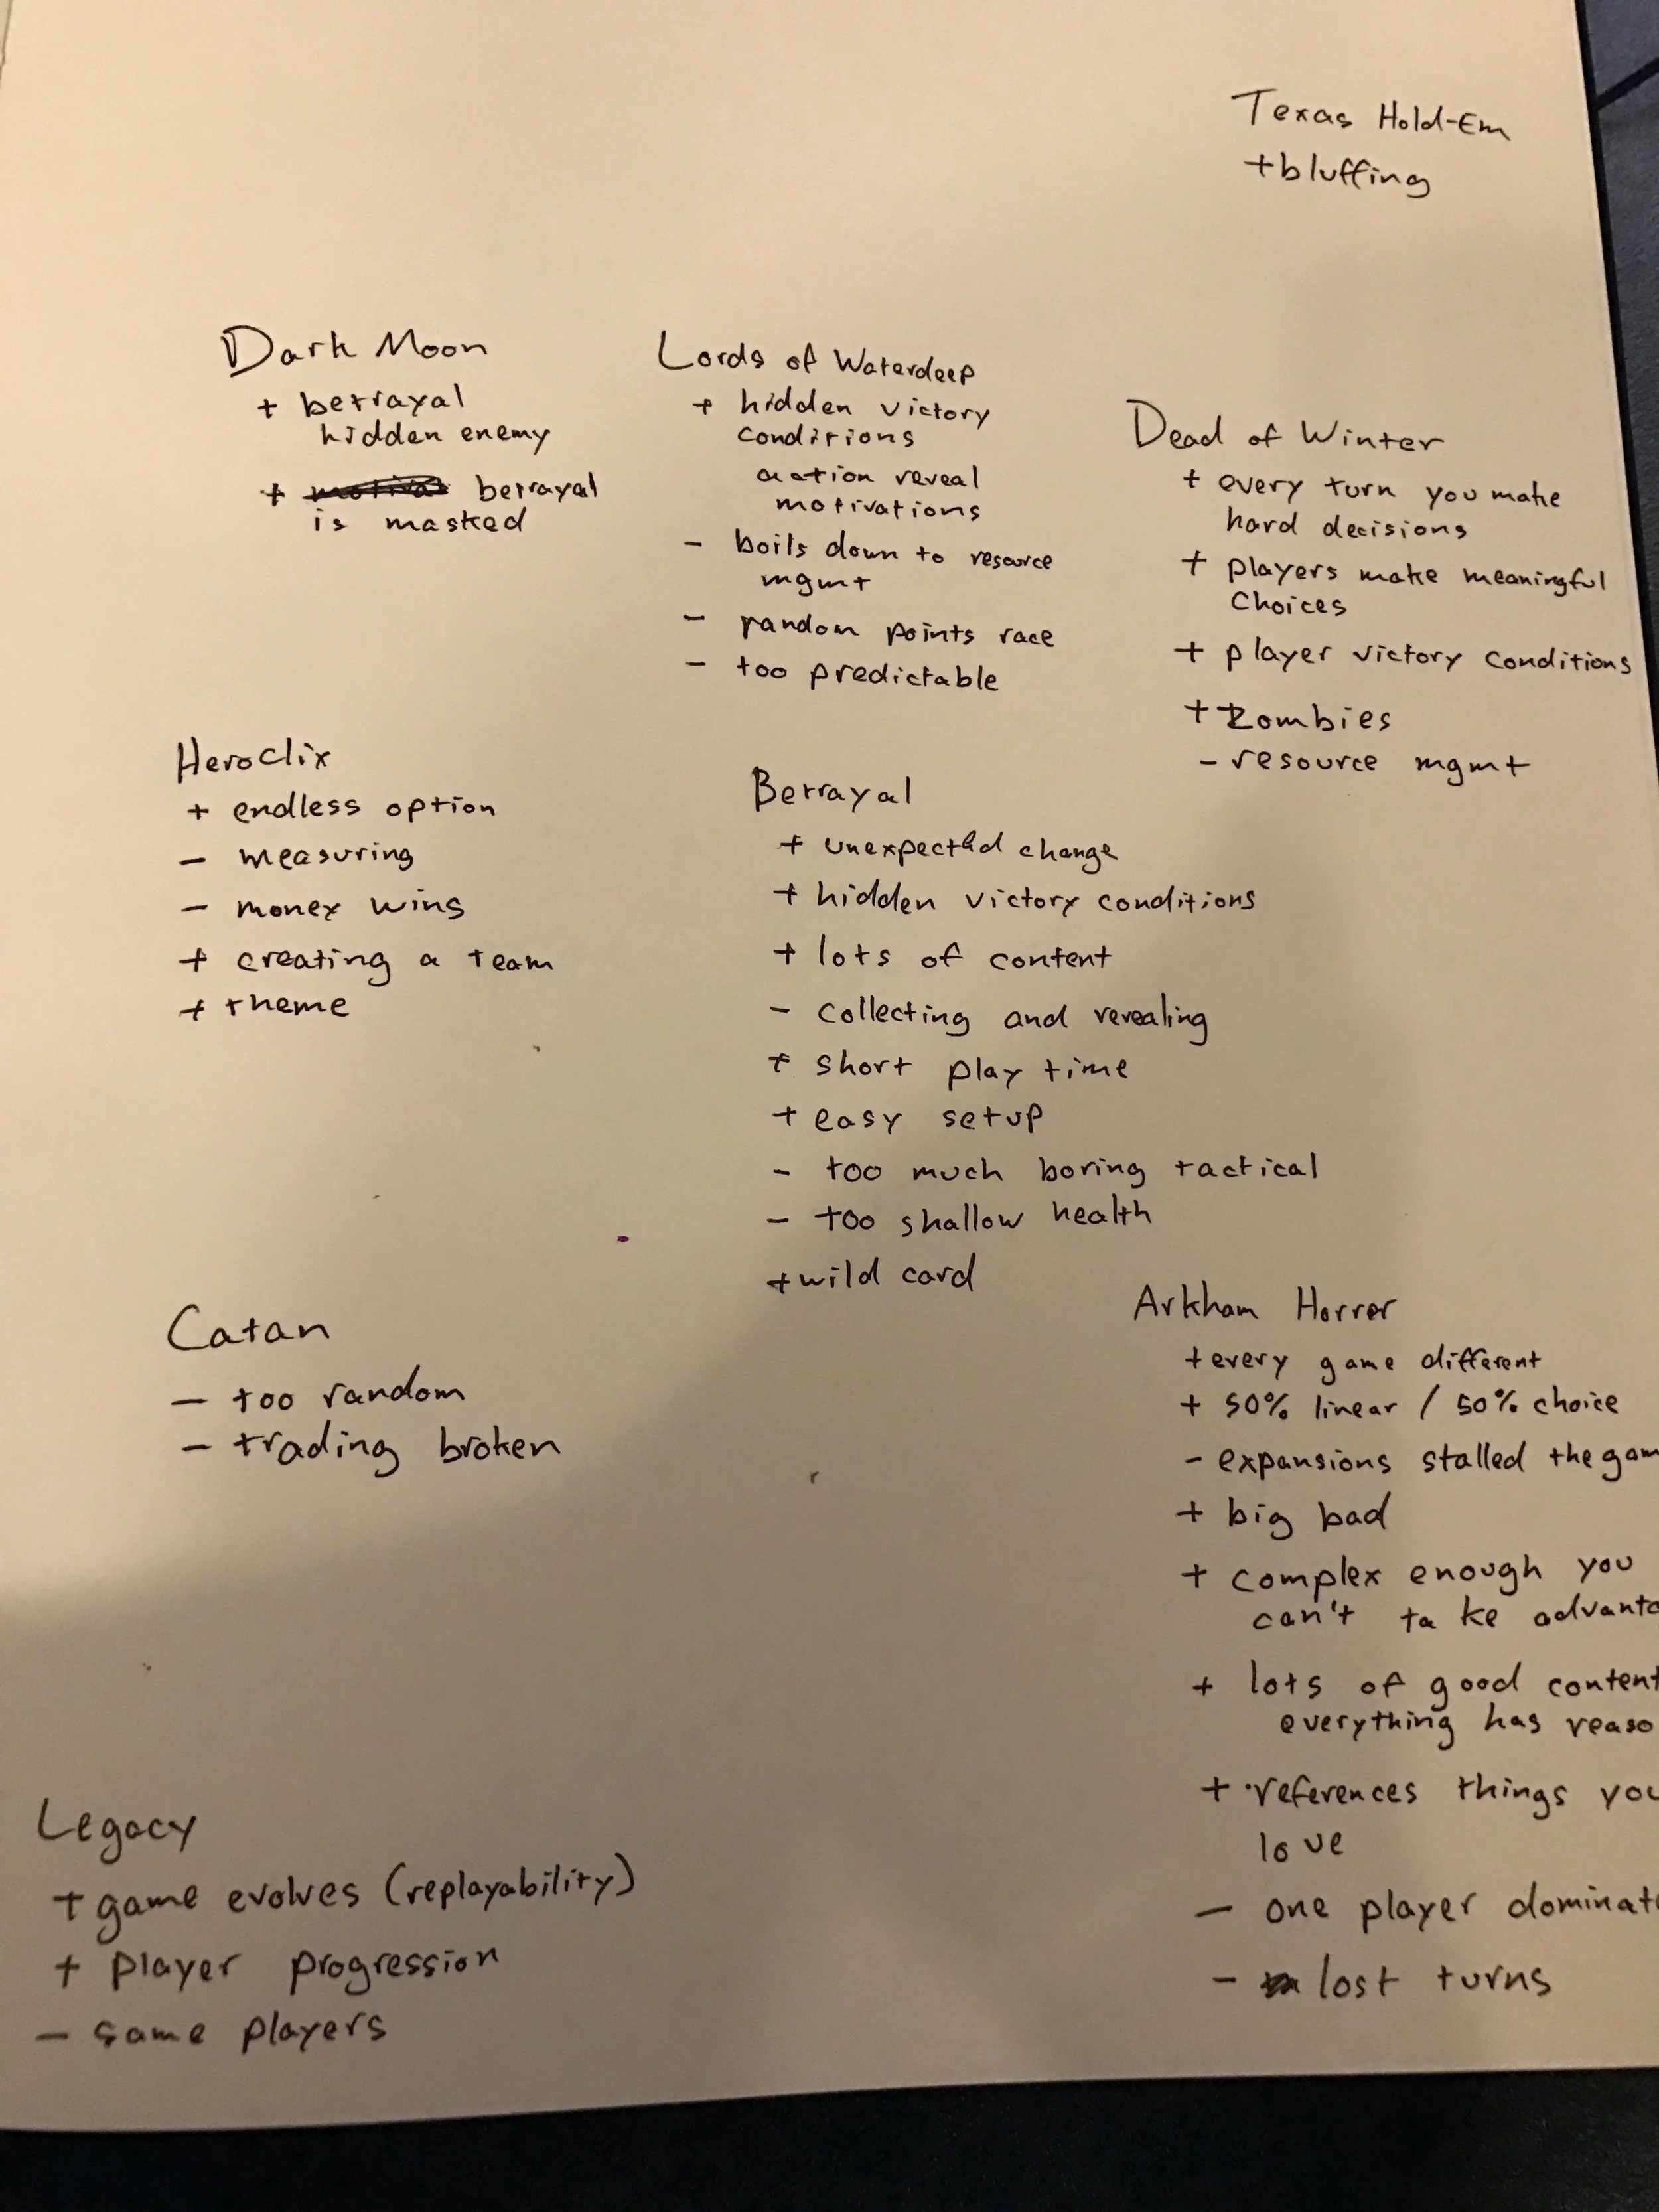 Texas Hold-Em
+bluffing
Dark Moon
+ betrayal
hidden enemy
+ betrayal
is masked
Lords of Waterdeep
+ hidden victory
conditions
action reveal
motivations
- boils down to resource
mgmt
- random points race
- too predictable
Dead of Winter
+ every turn you make
hard decisions
+ players make meaningful
Choices
+ player victory conditions
+ Zombies
- resource mgmt
HeroClix
+ endless option
- measuring
- money wins
+ creating a team
+ theme
Betrayal
+ unexpected change
+ hidden victory conditions
+ lots of content
- collecting and revealing
+ short play time
+ easy setup
- too much boring tactical
- too shallow health
+wild card
Catan
- too random
- trading broken
Arkham Horror
+every game different
+ 50% linear / 50% choice
- expansions stalled the gam
+ big bad
+ complex enough you
can't take advanta
+ lots of good content
everything has reaso
+ references things you
love
- one player dominat
- lost turns
Legacy
+ game evolves (replayability)
+ player progression
- same players